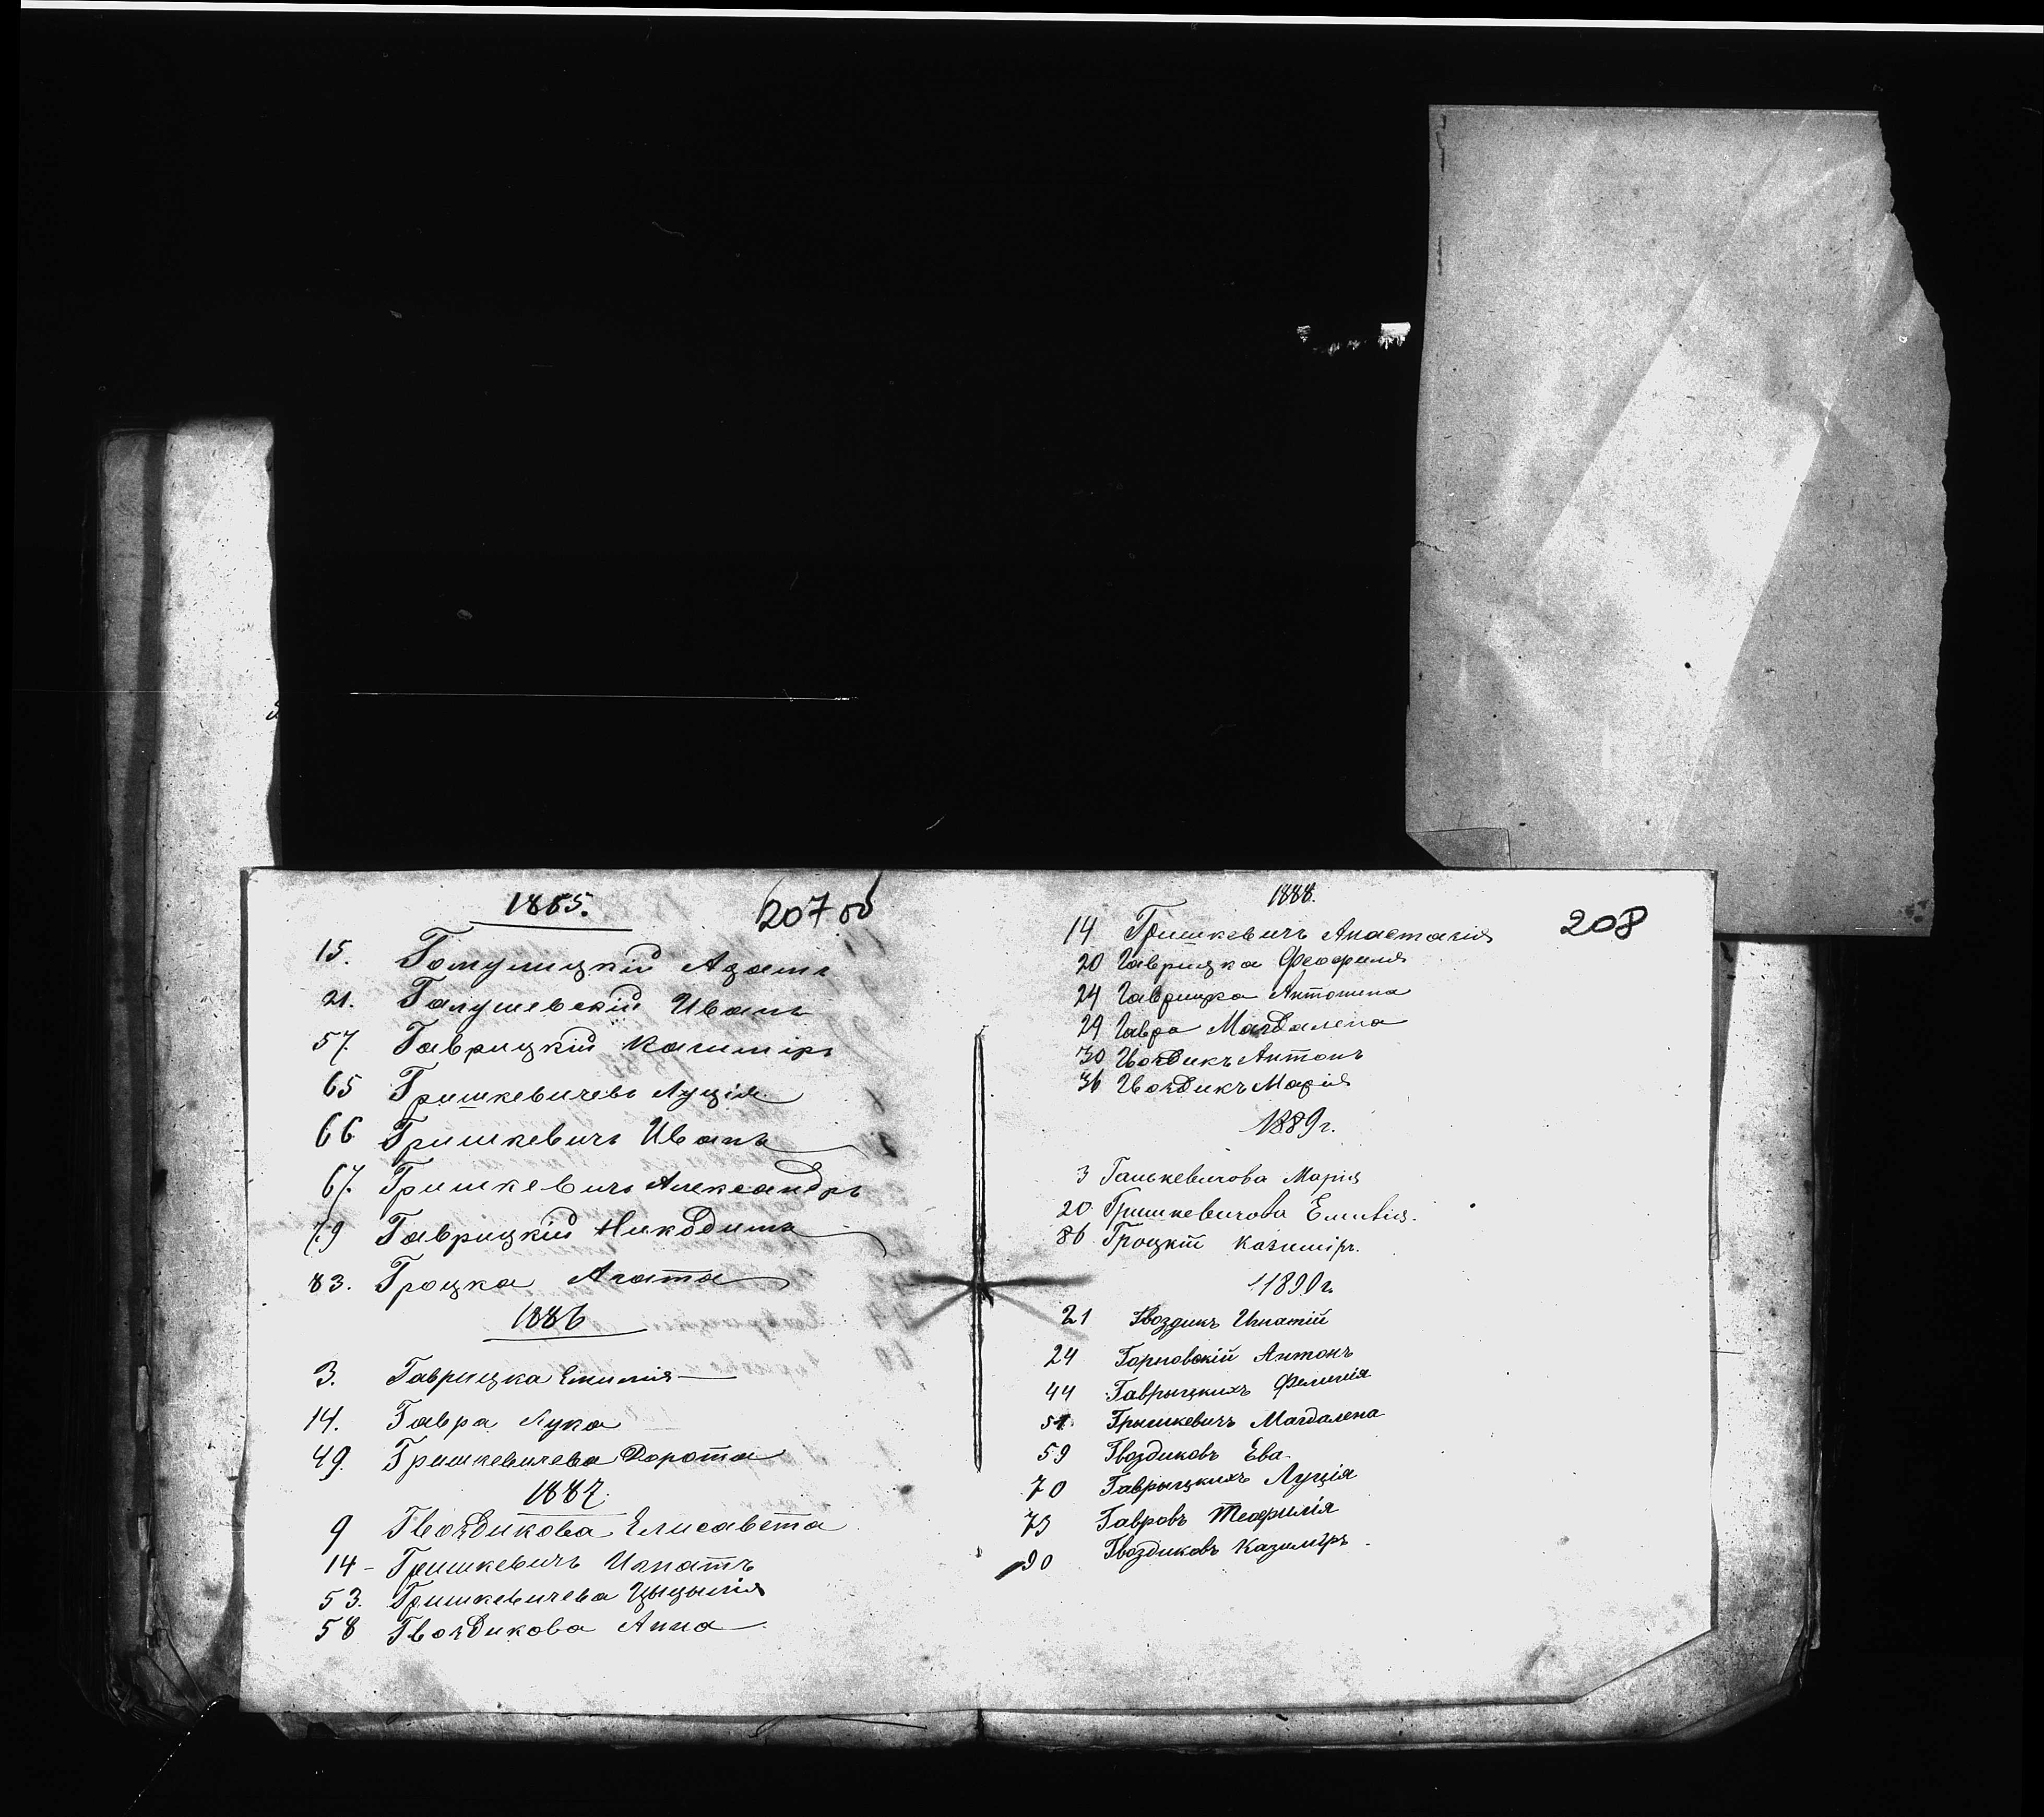 1885.
207 об
15. Гомулицкій Адамъ
21. Галушевскій Иванъ
57. Гаврицкій Казимиръ
65 Гришкевичевъ Луція
66 Гришкевичъ Иванъ
67. Гришкевичъ Александръ
79 Гаврицкій Никодимъ
83. Гроцка Агата
1886
3. Гаврицка Емилія
14. Гавра Лука
49. Гришкевичева Дорота
1887.
9 Гвоздикова Елисавета
14 - Гришкевичъ Игнатъ
53. Гришкевичева Цыцылія
58 Гвоздикова Анна
1888.
208
14 Гришкевичъ Анастазія
20 Гаврицка Феофиля
24 Гаврицка Антонина
29 Гавра Магдалена
30 Гвоздикъ Антонъ
36 Гвоздикъ Марія
1889 г.
3 Ганькевичова Марія
20 Гришкевичова
86 Гроцкій Казиміръ.
1890 г.
21 Гвоздикъ Игнатій
24 Горновскій Антонъ
44 Гаврыцкихъ Фелиція
51 Грышкевичъ Магдалена
59 Гвоздиковъ Ева
70 Гаврыцкихъ Луція
73 Гавровъ Теофилія
90 Гвоздиковъ Казимiръ